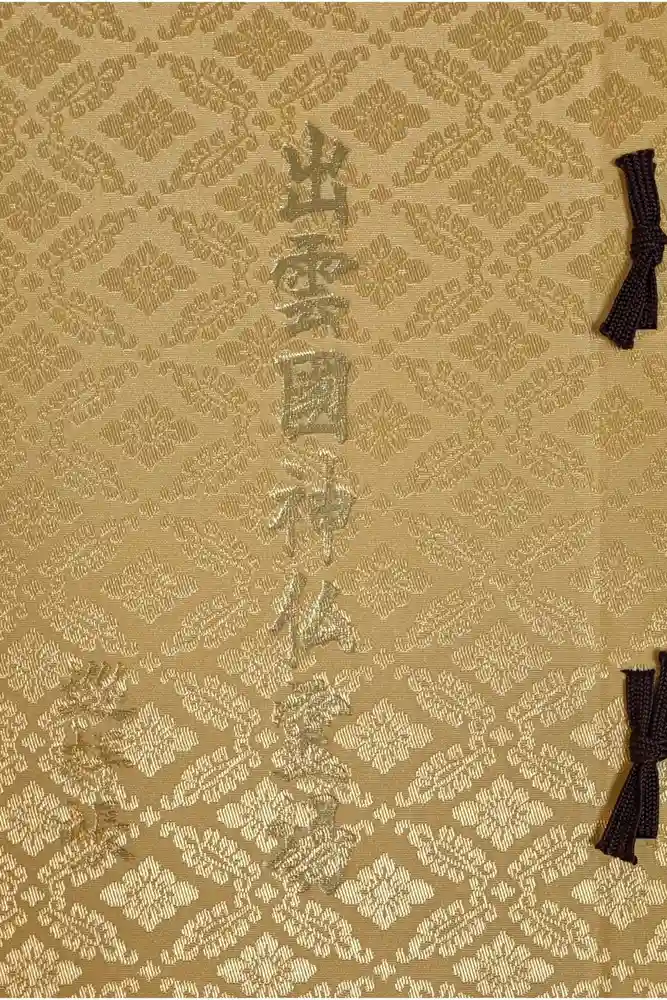 出雲國神仏霊場
巡拝帖